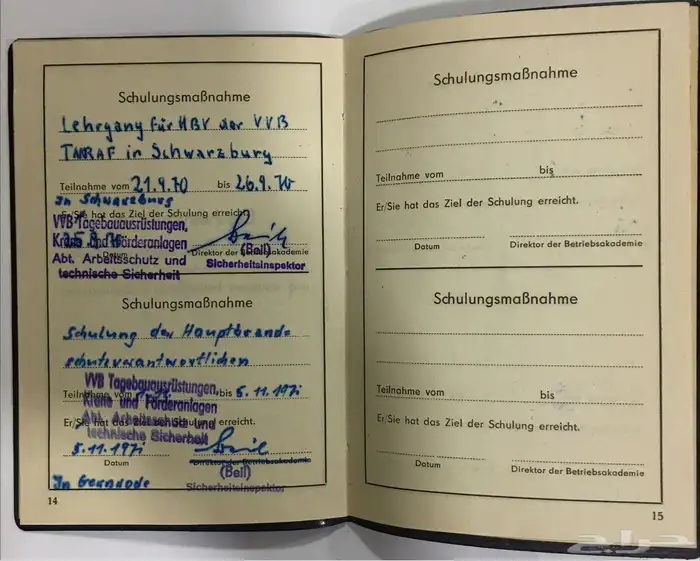 Schulungsmaßnahme
Lehrgang für HBV der VVB
TAKRAF in Schwarzburg
Teilnahme vom 21.9.70 bis 26.9.70
In Schwarzburg
Er/Sie hat das Ziel der Schulung erreicht.
VVB Tagebauausrüstungen,
Krane und Förderanlagen
Datum
Direktor der Betriebsakademie
(Beil)
Abt. Arbeitsschutz und
Sicherheitsinspektor
technische Sicherheit
Schulungsmaßnahme
Schulung der Hauptbrand-
schutzverantwortlichen
VVB Tagebauausrüstungen,
Teilnahme vom bis 5.11.1971
Krane und Förderanlagen
Er/Sie hat das Ziel der Schulung erreicht.
Abt. Arbeitsschutz und
technische Sicherheit
5.11.1971
Datum
Direktor der Betriebsakademie
(Beil)
In Gernrode
Sicherheitsinspektor
14
Schulungsmaßnahme
Teilnahme vom bis
Er/Sie hat das Ziel der Schulung erreicht.
Datum
Direktor der Betriebsakademie
Schulungsmaßnahme
Teilnahme vom bis
Er/Sie hat das Ziel der Schulung erreicht.
Datum
Direktor der Betriebsakademie
15
حراج